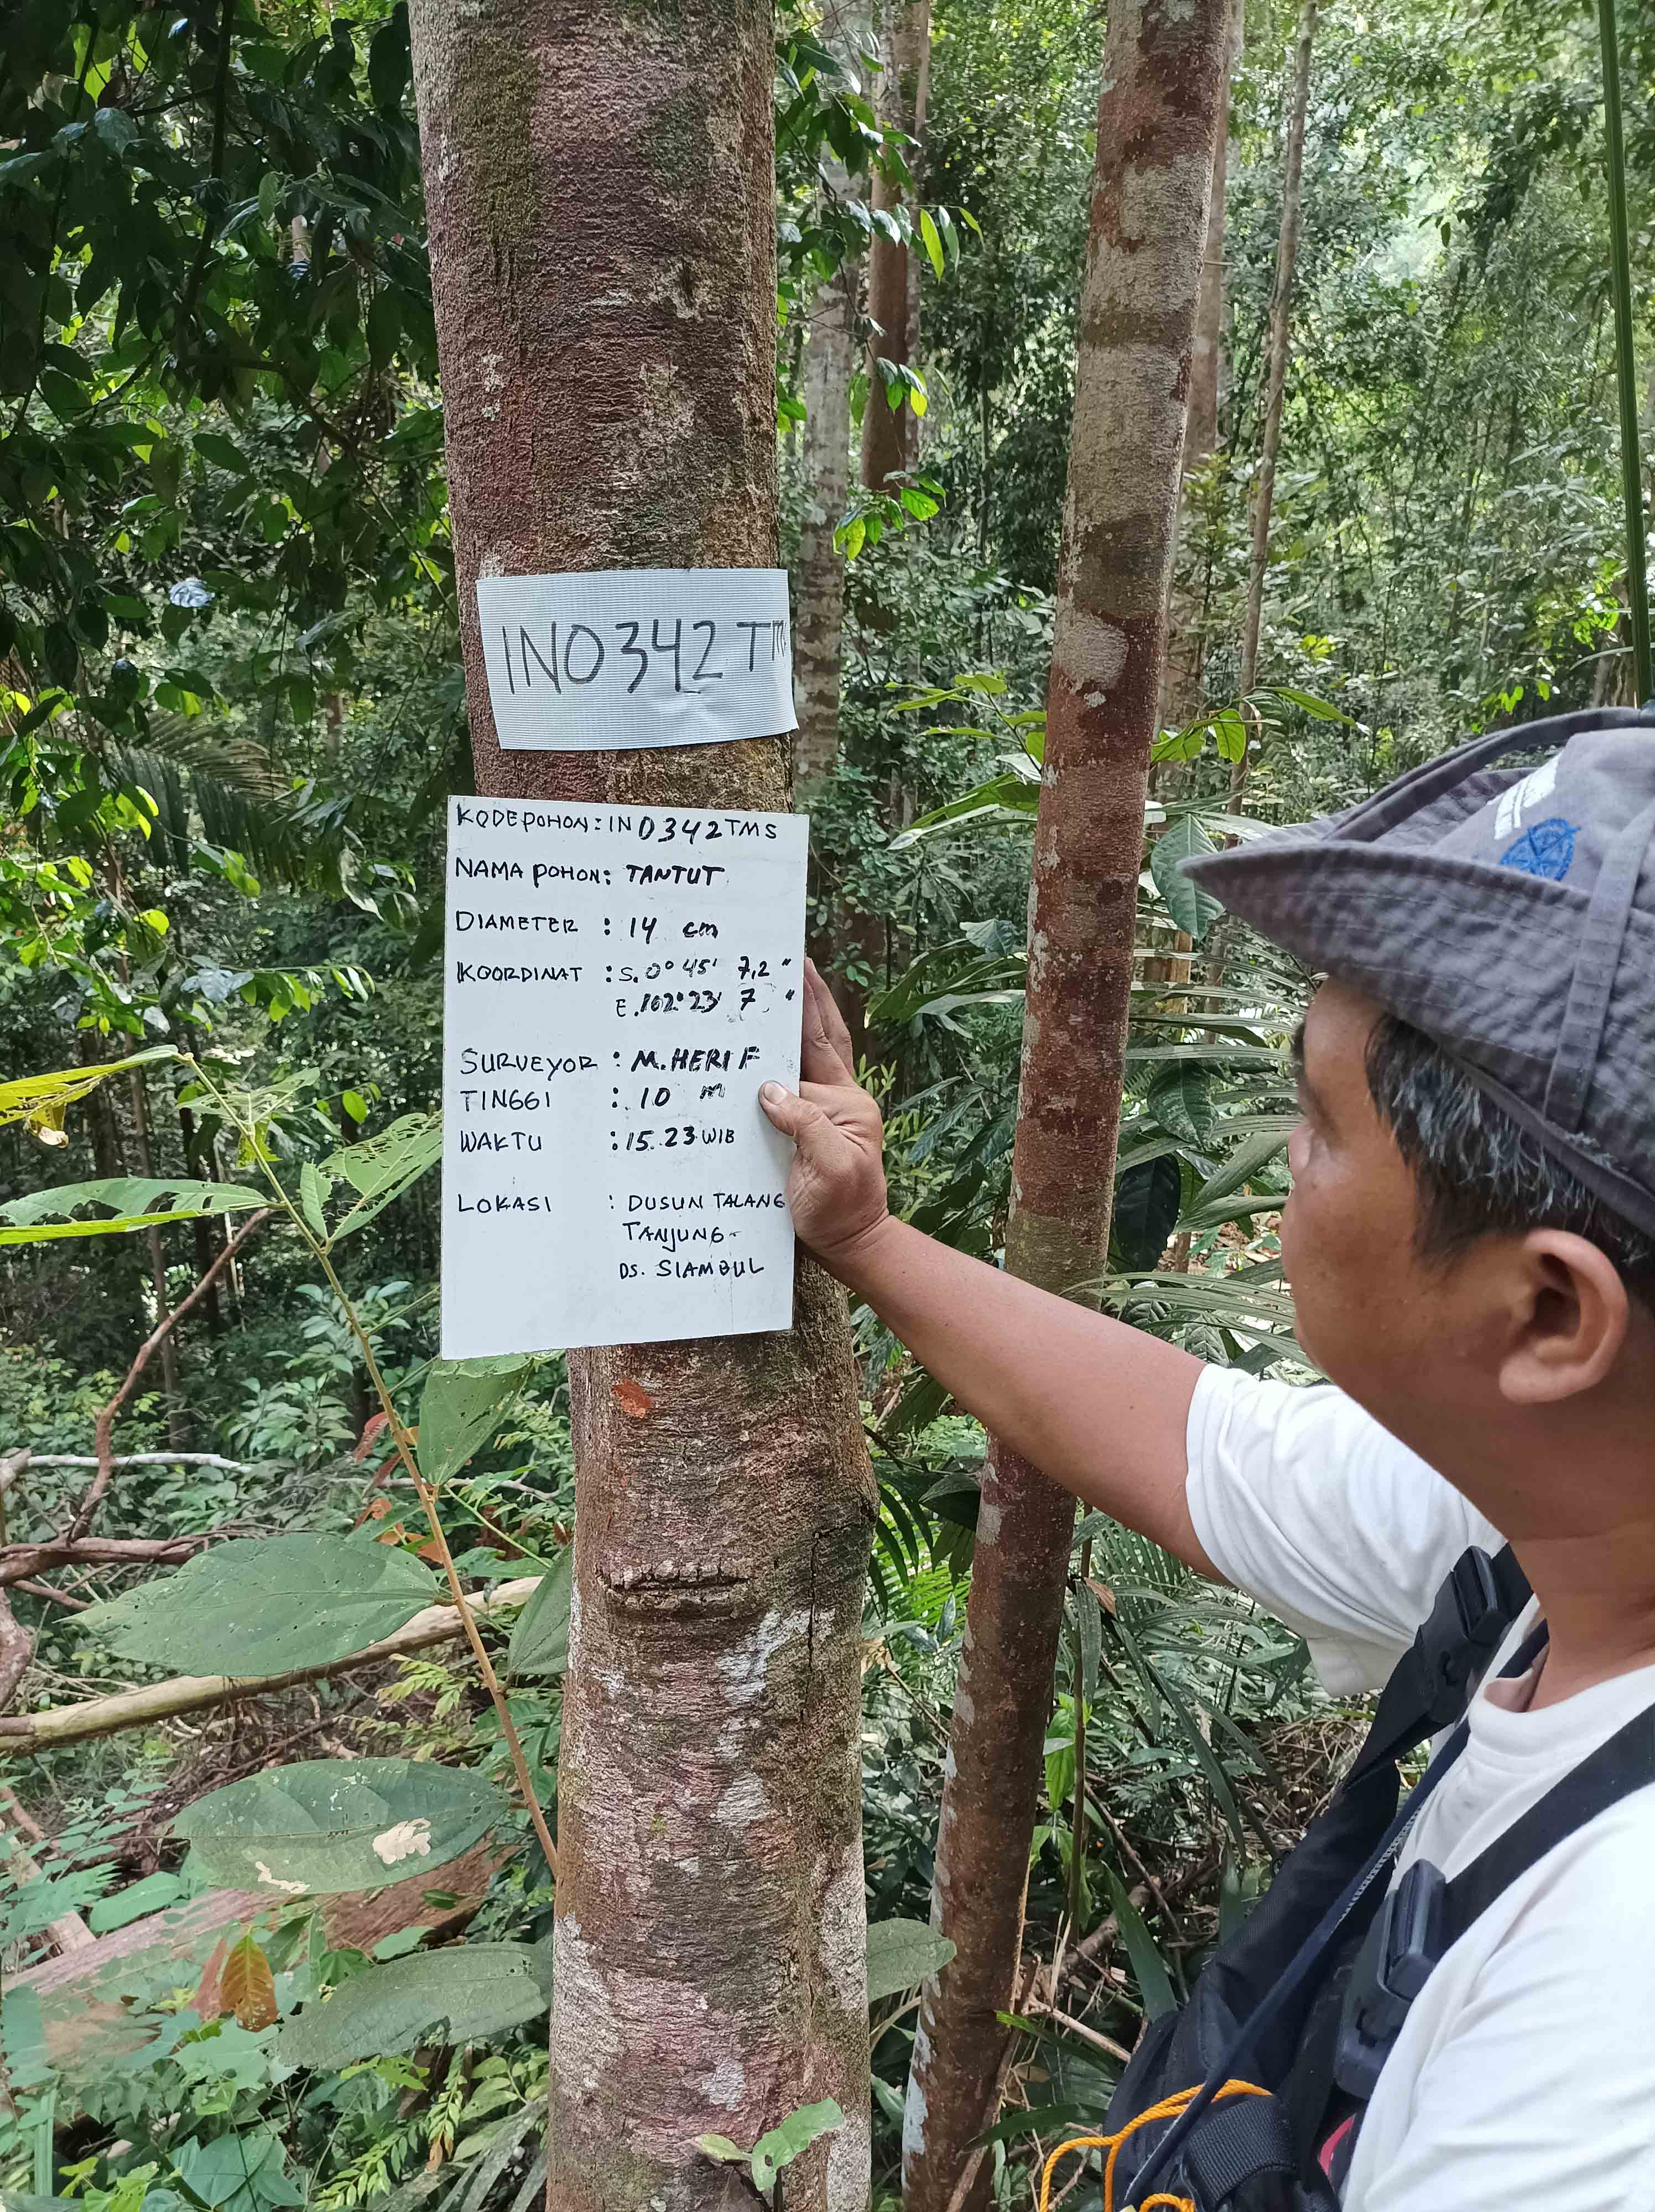 IN0342TM
KODE POHON : IN 0342 TMS
NAMA POHON : TANTUT
DIAMETER : 14 cm
KOORDINAT : S. 0° 45' 7,2 "
E. 102° 23' 7 "
SURVEYOR : M. HERI F
TINGGI : 10 m
WAKTU : 15.23 WIB
LOKASI : DUSUN TALANG
TANJUNG -
DS. SIAMBUL